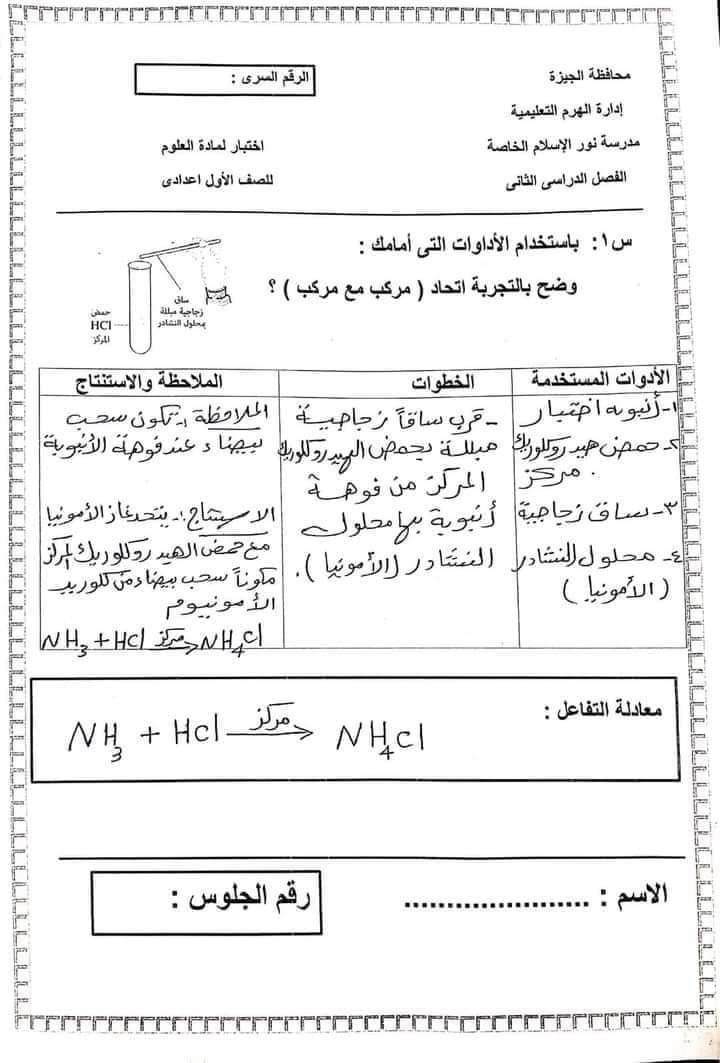 محافظة الجيزة
الرقم السرى :
إدارة الهرم التعليمية
مدرسة نور الإسلام الخاصة
اختبار لمادة العلوم
الفصل الدراسى الثانى
للصف الأول اعدادى
س١: باستخدام الأداوات التى أمامك :
وضح بالتجربة اتحاد ( مركب مع مركب ) ؟
ساق
زجاجية مبللة
بمحلول النشادر
حمض
HCl
المركز
الأدوات المستخدمة
١- أنبوبه اختبار
٢- حمض هيدروكلوريك
مركز .
٣- ساق زجاجية
٤- محلول النشادر
(الأمونيا)
الخطوات
- قرب ساقاً زجاجية
مبللة بحمض الهيدروكلوريك
المركز من فوهة
أنبوبة بها محلول
النشادر (الأمونيا).
الملاحظة والاستنتاج
الملاحظة :- تكون سحب
بيضاء عند فوهة الأنبوبة
الاستنتاج :- يتحد غاز الأمونيا
مع حمض الهيدروكلوريك المركز
مكوناً سحب بيضاء من كلوريد
الأمونيوم
NH₃ + HCl مركز → NH₄Cl
معادلة التفاعل :
NH₃ + HCl مركز → NH₄Cl
الاسم : .....................
رقم الجلوس :